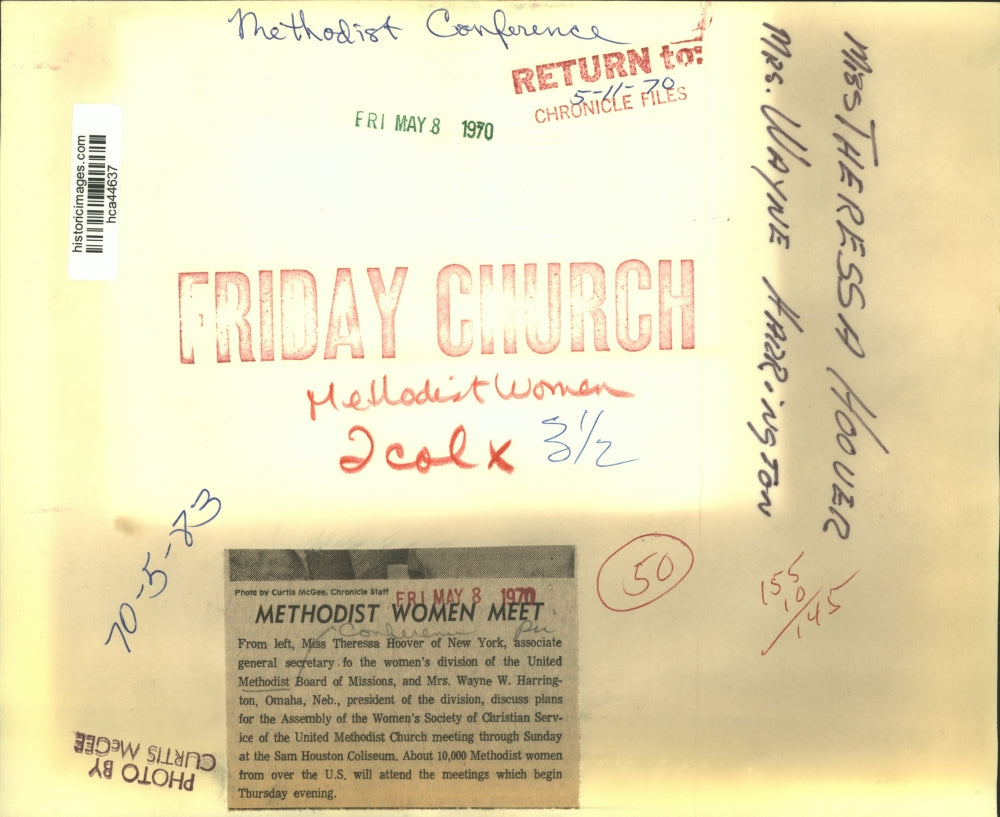 Methodist Conference
RETURN to:
5-11-70
CHRONICLE FILES
FRI MAY 8 1970
historicimages.com
hca44637
MISS THERESSA HOOVER
MRS. WAYNE HARRINGTON
FRIDAY CHURCH
Methodist Women
2 col x 3 1/2
70-5-83
50
155
10
145
Photo by Curtis McGee, Chronicle Staff
FRI MAY 8 1970
METHODIST WOMEN MEET
Conference
From left, Miss Theressa Hoover of New York, associate
general secretary fo the women's division of the United
Methodist Board of Missions, and Mrs. Wayne W. Harring-
ton, Omaha, Neb., president of the division, discuss plans
for the Assembly of the Women's Society of Christian Serv-
ice of the United Methodist Church meeting through Sunday
at the Sam Houston Coliseum. About 10,000 Methodist women
from over the U.S. will attend the meetings which begin
Thursday evening.
PHOTO BY
CURTIS McGEE